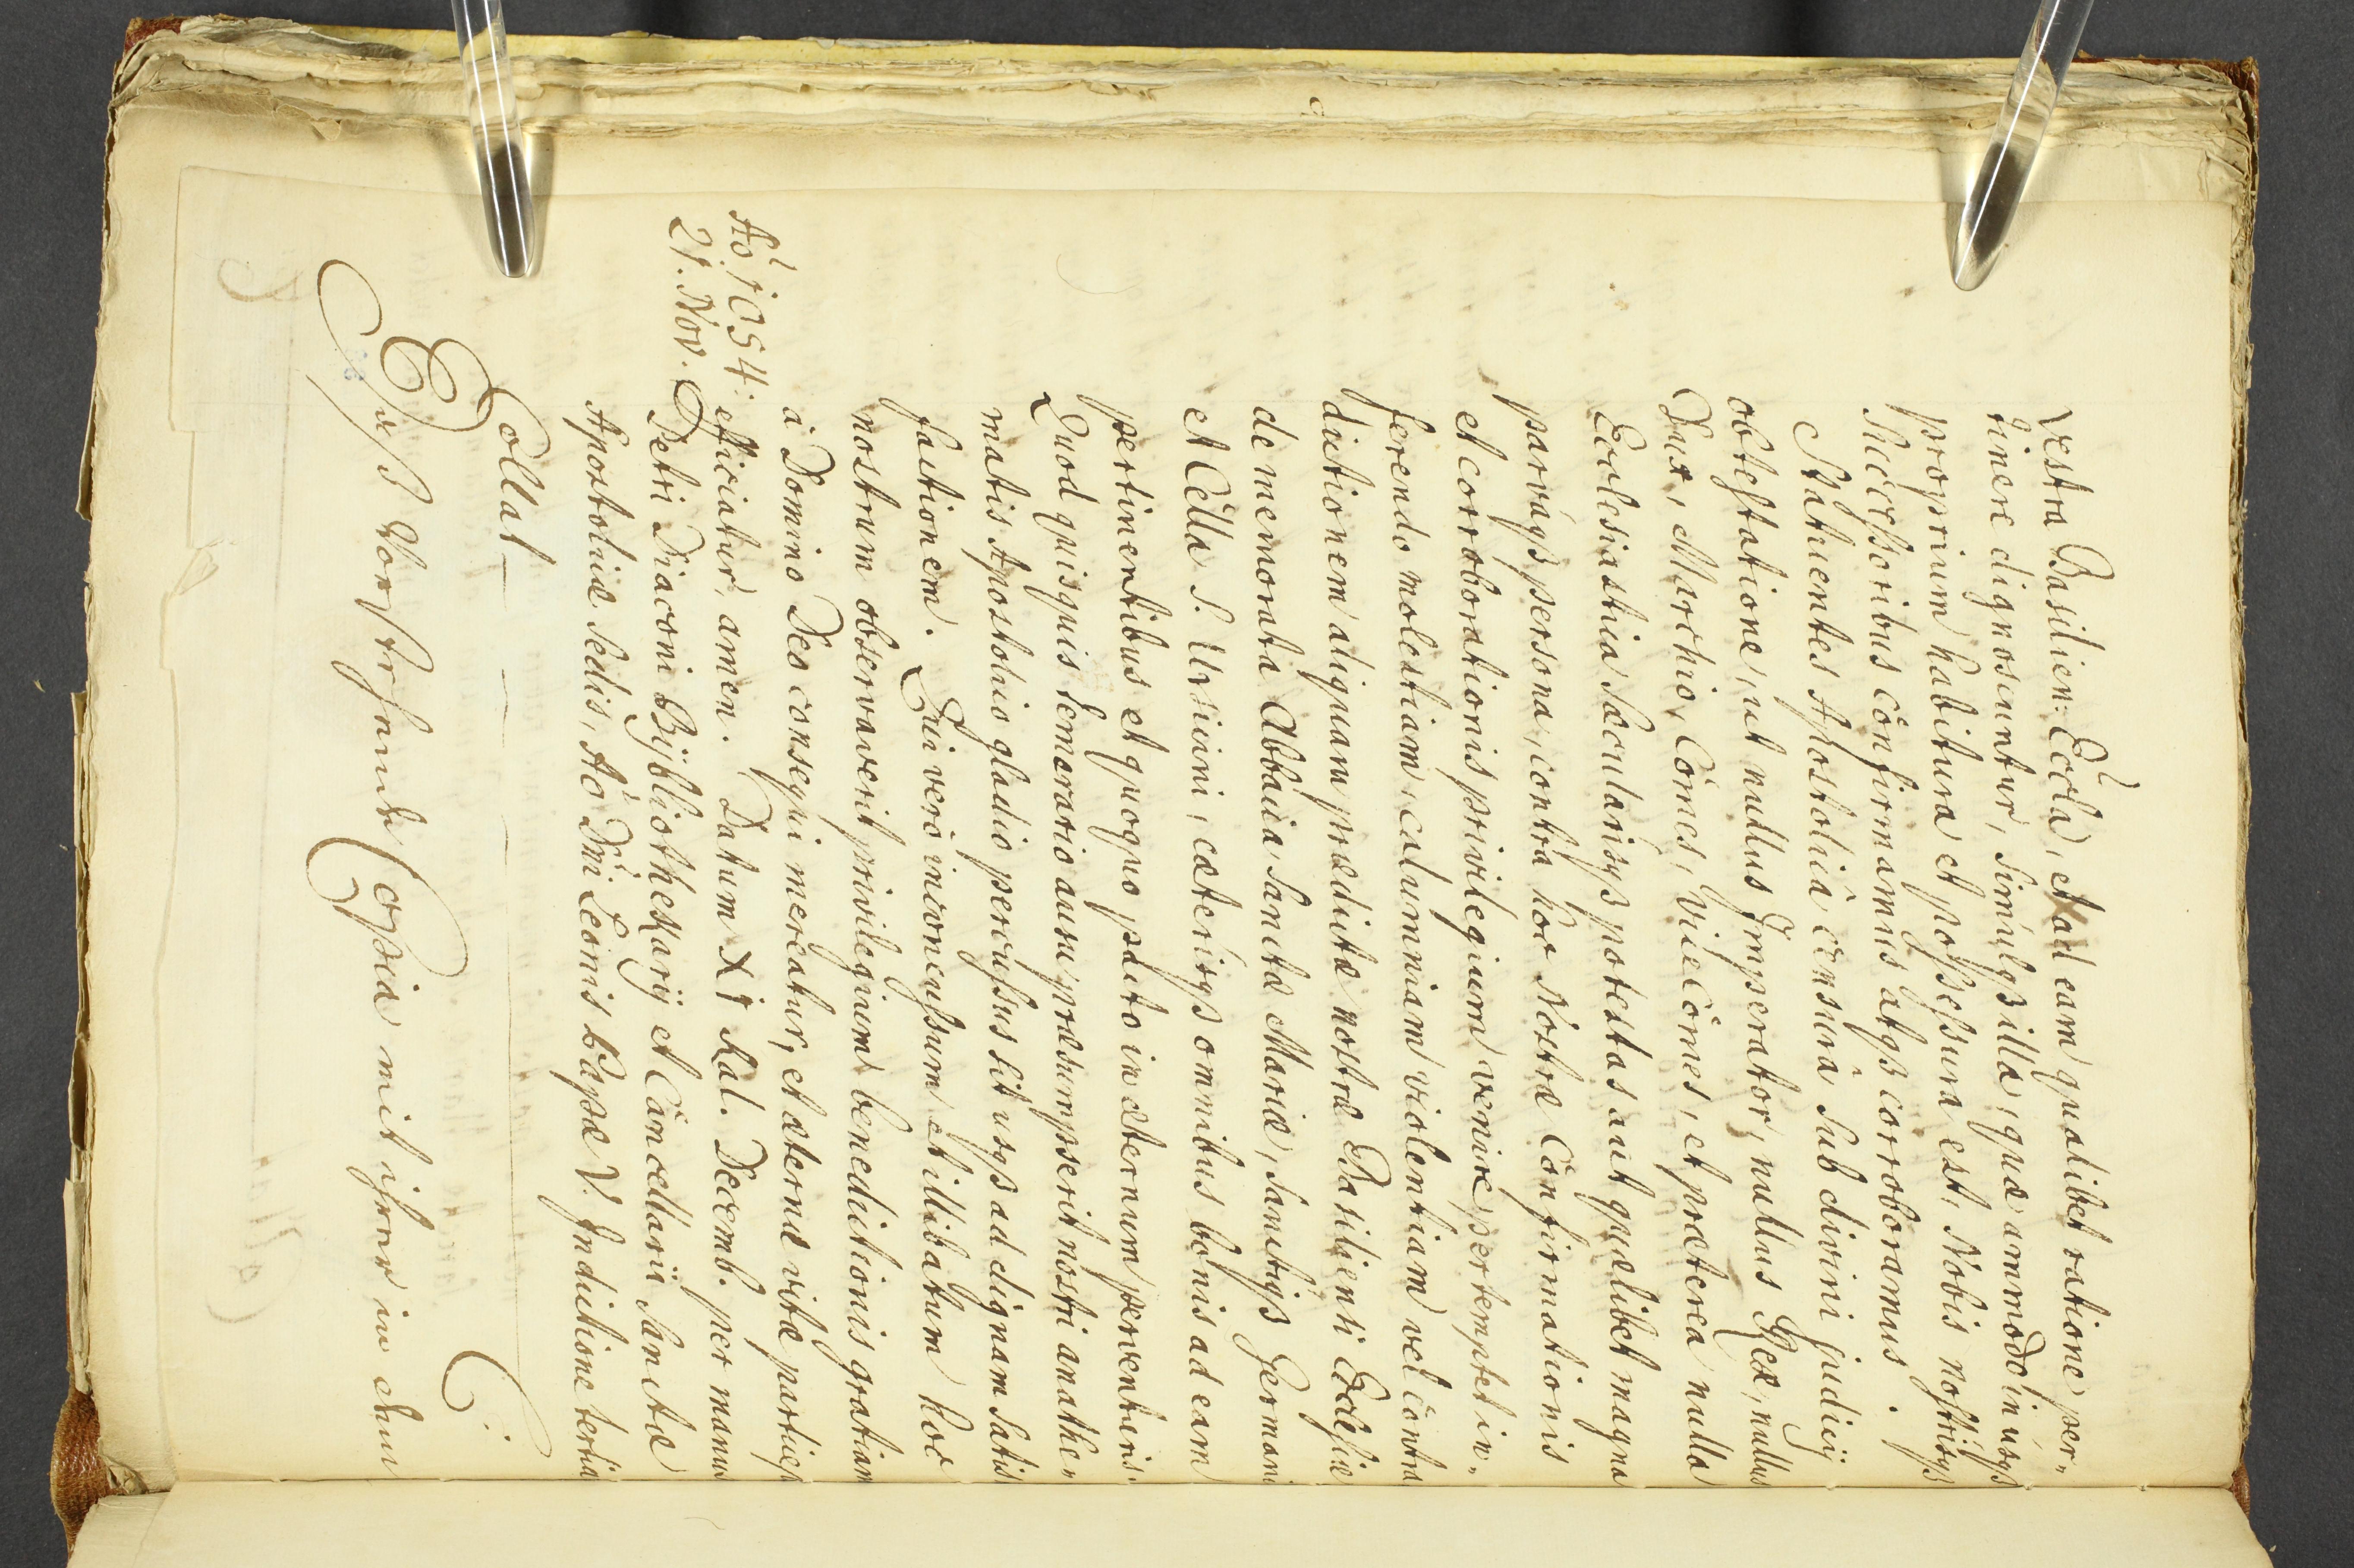 Vestra Basilien: Eccla, et ad eam qualibet ratione per„
tinere dignoscuntur, simulqß illa, quæ ammodo inusqß
proprium habitura et poßeßura est, Nobis nostrisqß
Succeßoribus confirmamus atqß corroboramus.
Statuentes Apostolica censura sub divini judicij
obtestatione, ut nullus Imperator, nullus Rex, nullus
Dux, Marchio, Comes, ViceComes, et præterea nulla
Ecclesiastica Sæcularisqß potestas aut quælibet magna
parváqß persona, contra hoc Nostræ Confirmationis
et corroborationis privilegium venire pertemptet in„
ferendo molestiam, calumniam violentiam vel contra
dictionem aliquam prædictæ nostræ Basiliensi Ecleßiæ
de memorata Abbatia, Sanctæ Mariæ, Sanctiqß Germani
et Cella S. Ursicini, cæterisqß omnibus bonis ad eam
pertinentibus et quoquo pacto in æternum perventuris.
Quod quisquis temerario ausu præsumpserit nostri anathe„
matis Apostolico gladio percußus sit usqß ad dignam satis
factionem. Qui vero inconcußum et illibatum hoc
nostrum observaverit privilegium benedictionis gratiam
à Domino Deo consequi mereatur, et æternæ vitæ particeps
Aō 1054. efficiatur, amen. Datum XI Kal. Decemb. per manus
21. Nov. Petri Diaconi Bybliothekarij et Cancellarii Sanctæ
Apostolicæ Sedis, Aō Dni Leonis Papæ V. Indictione tertia
Collat
Daß Vorstehende Copia mit ihrer in dem